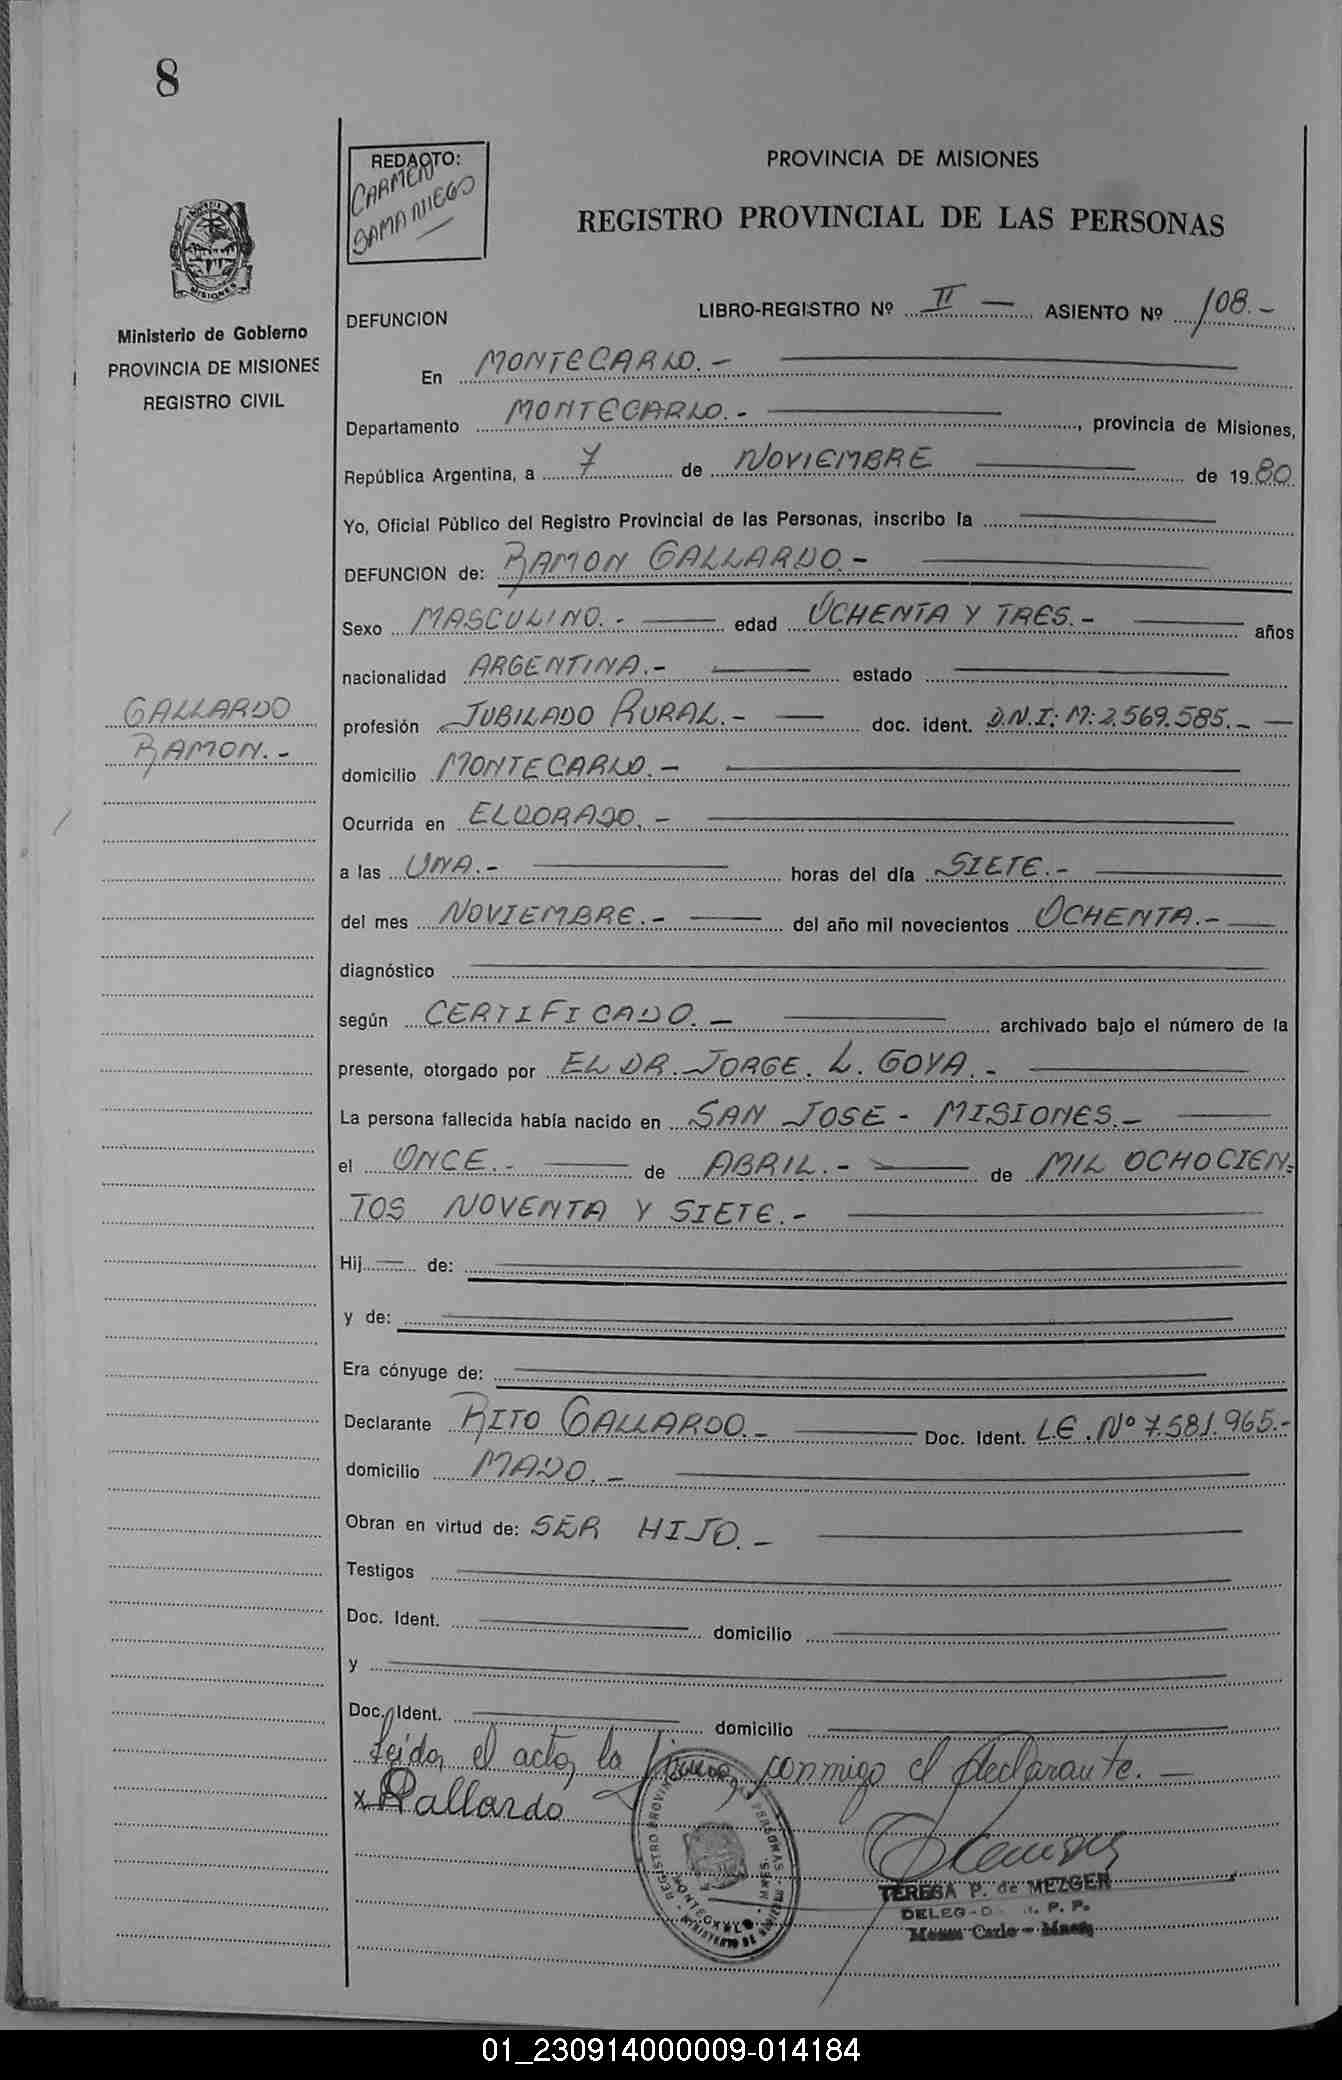 8
REDACTO:
CARMEN
SAMANIEGO
PROVINCIA DE MISIONES
REGISTRO PROVINCIAL DE LAS PERSONAS
MISIONES
Ministerio de Gobierno
PROVINCIA DE MISIONES
REGISTRO CIVIL
DEFUNCION LIBRO-REGISTRO Nº II — ASIENTO Nº 108.-
En MONTECARLO.-
Departamento MONTECARLO.- , provincia de Misiones,
República Argentina, a 7 de NOVIEMBRE de 1980
Yo, Oficial Público del Registro Provincial de las Personas, inscribo la
DEFUNCION de: RAMON GALLARDO.-
Sexo MASCULINO.- edad OCHENTA Y TRES.- años
nacionalidad ARGENTINA.- estado
GALLARDO
RAMON.-
profesión JUBILADO RURAL.- doc. ident. D.N.I: M: 2.569.585.-
domicilio MONTECARLO.-
Ocurrida en ELDORADO.-
a las UNA.- horas del día SIETE.-
del mes NOVIEMBRE.- del año mil novecientos OCHENTA.-
diagnóstico
según CERTIFICADO.- archivado bajo el número de la
presente, otorgado por EL DR. JORGE. L. GOYA.-
La persona fallecida había nacido en SAN JOSE - MISIONES.-
el ONCE.- de ABRIL.- de MIL OCHOCIEN=
TOS NOVENTA Y SIETE.-
Hij de:
y de:
Era cónyuge de:
Declarante RITO GALLARDO.- Doc. Ident. L.E. Nº 7.581.965.-
domicilio MADO.-
Obran en virtud de: SER HIJO.-
Testigos
Doc. Ident. domicilio
y
Doc. Ident. domicilio
Leida, el acta, la firma, conmigo el declarante.-
x RGallardo
TERESA P. de MEZGER
DELEG P. P.
Monte Carlo - Mnes
01_230914000009-014184